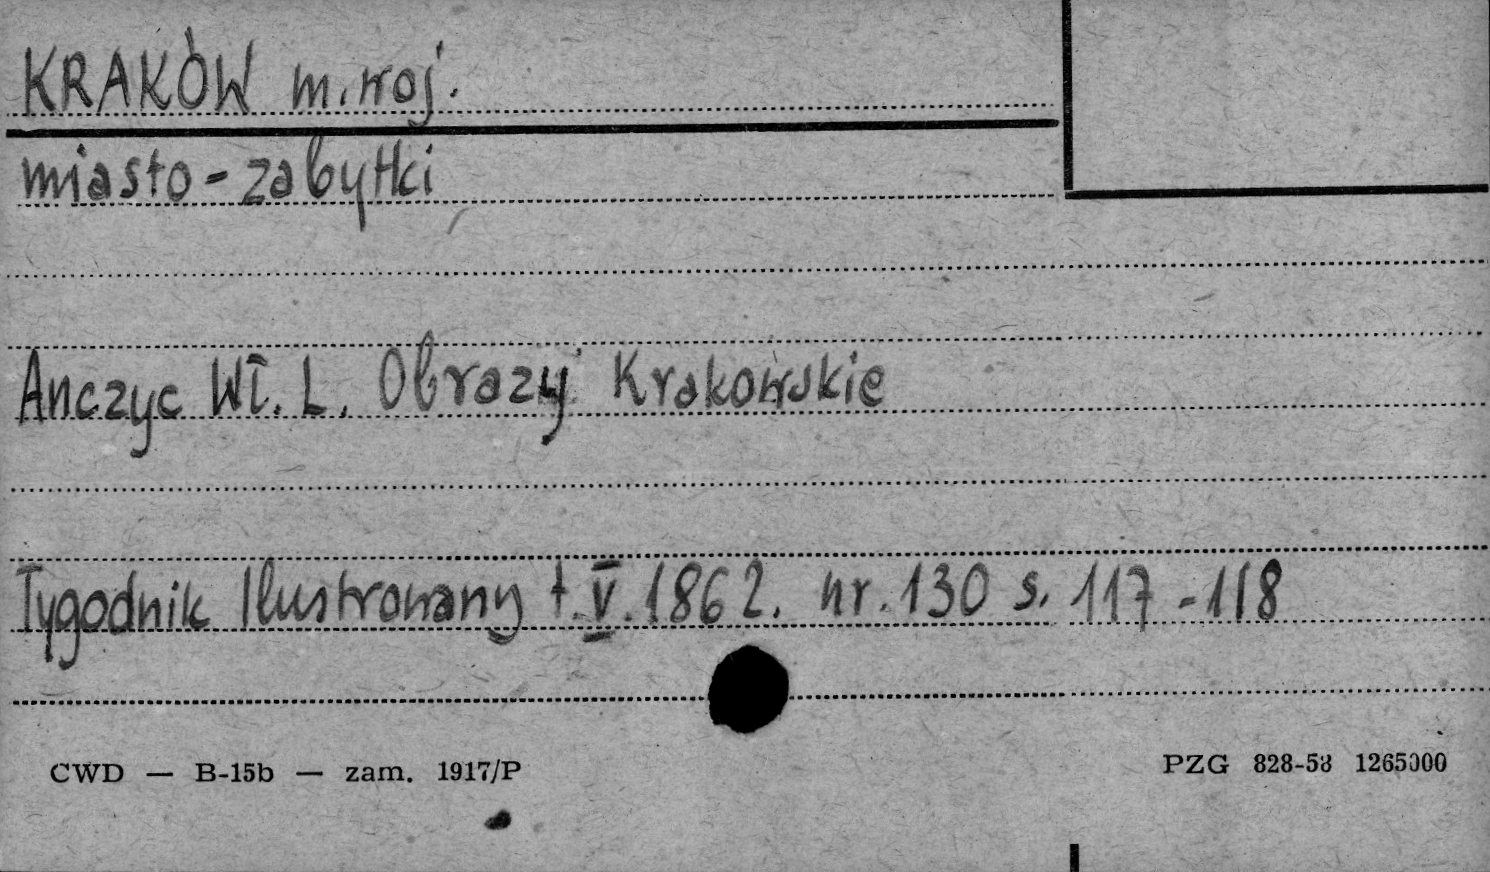 KRAKÓW m. woj.
miasto - zabytki
Anczyc Wł. L. Obrazy Krakowskie
Tygodnik Ilustrowany t. V. 1862. nr. 130 s. 117 - 118
CWD — B-15b — zam. 1917/P
PZG 828-58 1265000